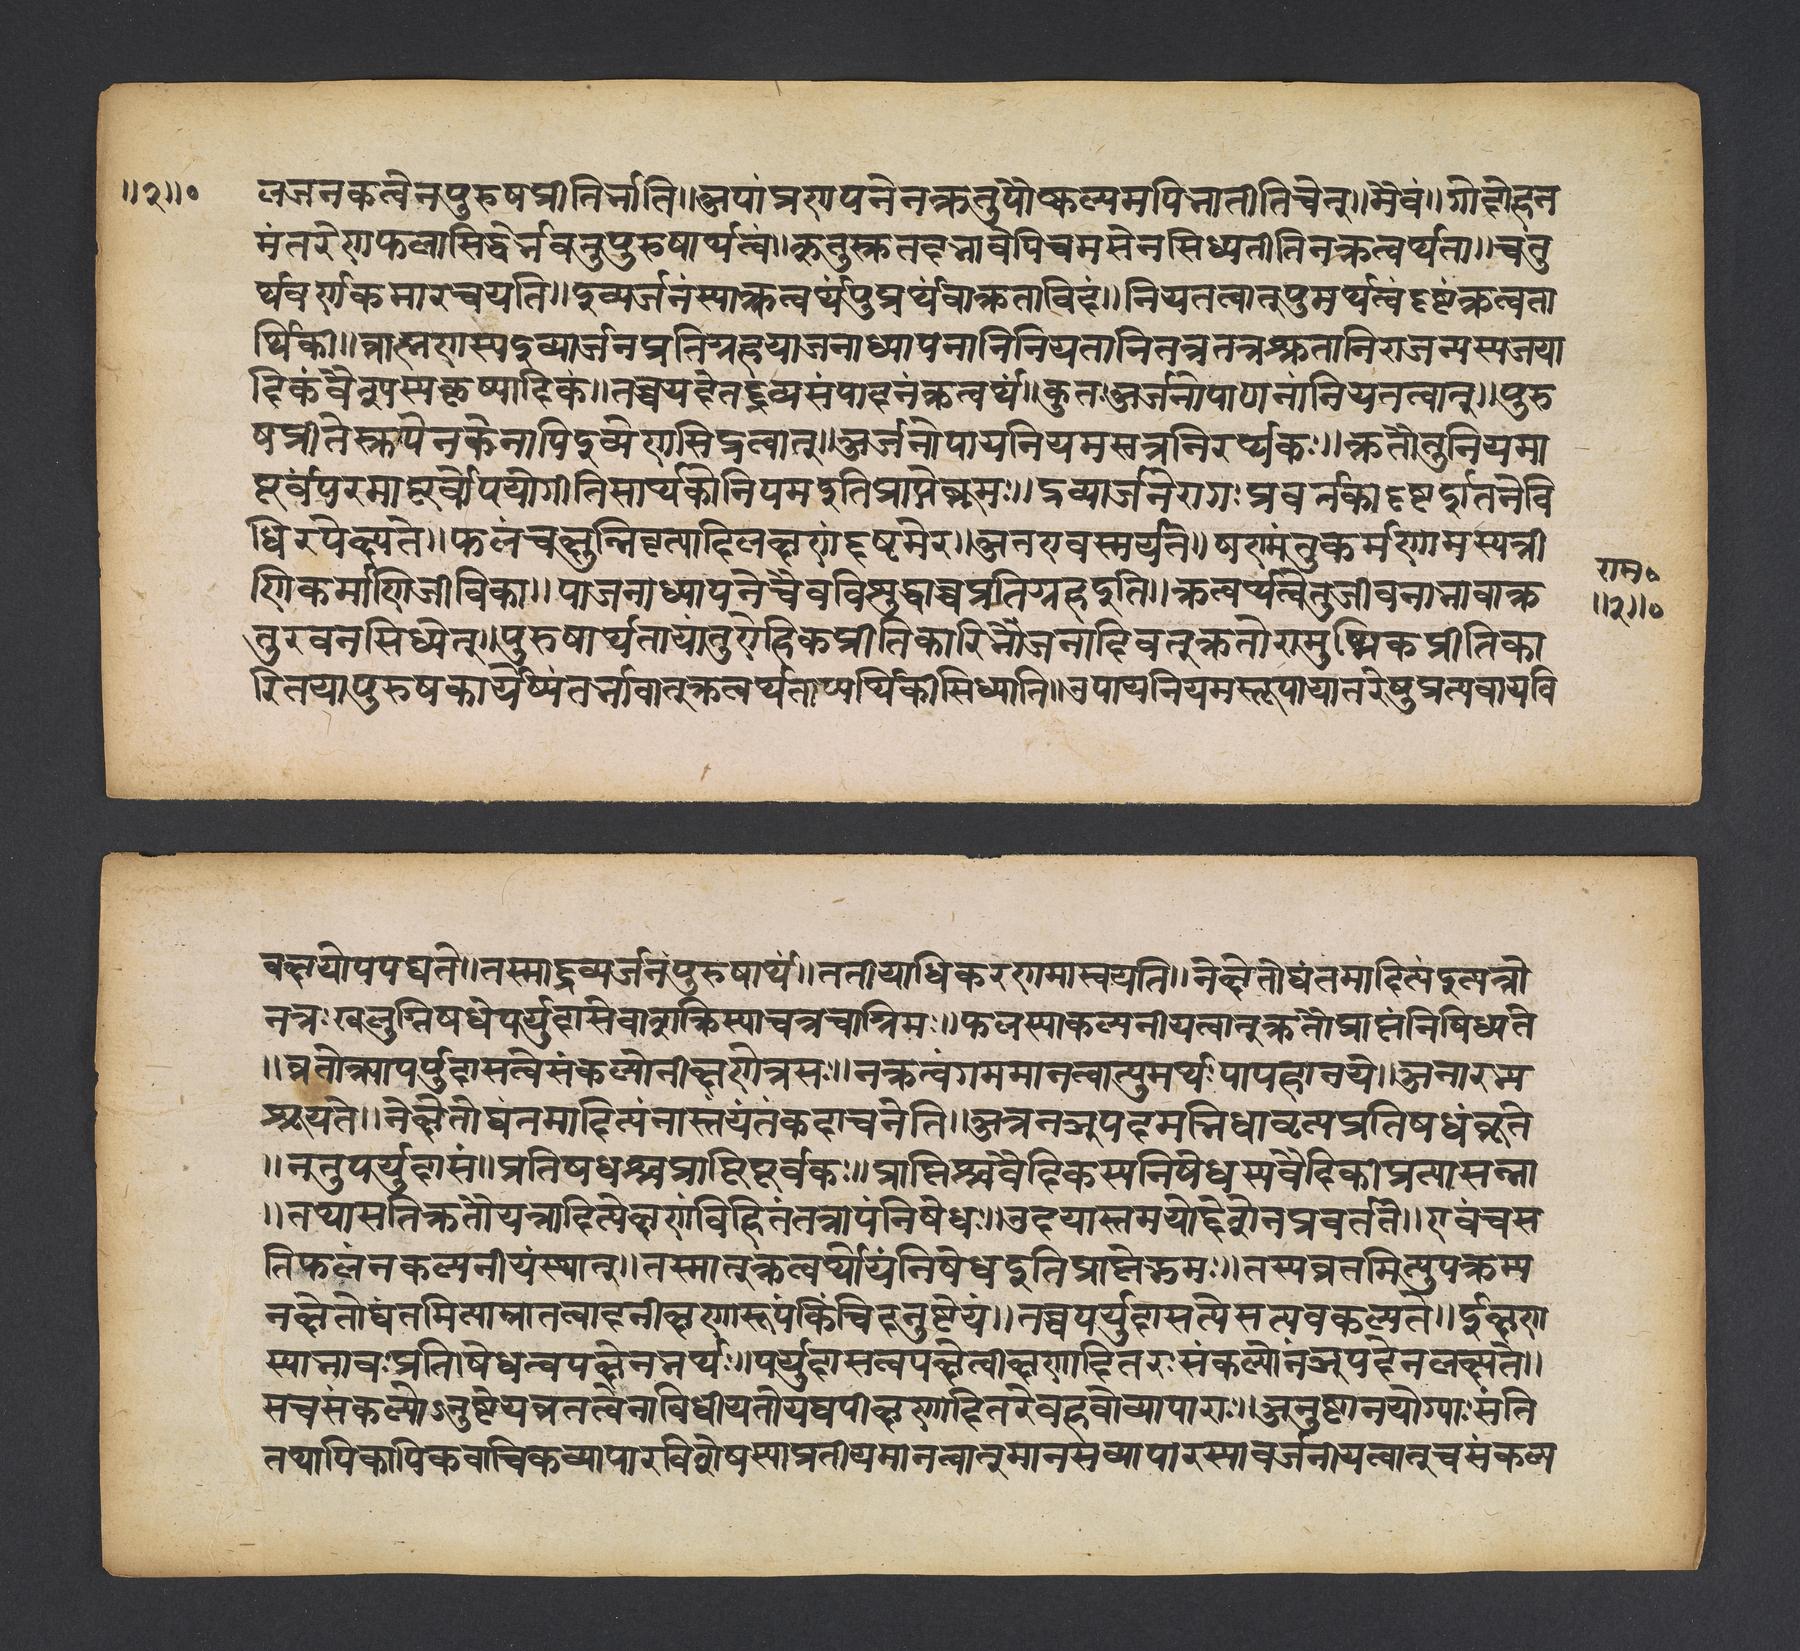 ॥२॥०
लजनकत्वेनपुरुषप्रीतिर्भाति॥अपांप्रणयनेनक्रतुपौष्कल्यमपिभातीतिचेत्॥मैवं॥गोदोहन
मंतरेणफलासिद्धेर्भवतुपुरुषार्थत्वं॥क्रतुस्क्ततदभावेपिचमसेनसिध्यतीतिनक्रत्वर्थता॥चतु
र्थवर्णकमारचयति॥द्रव्यर्जनंस्याक्रत्वर्थंपुप्रर्थंवाक्रताविदं॥नियतत्वात्पुमर्थत्वंदृष्टंक्रत्वता
र्थिकी॥ब्राह्मणस्यद्रव्यार्जनप्रतिग्रहयाजनाध्यापनानिनियतानितत्रतत्रश्रुतानिराजन्यस्यजया
दिकंवैश्यस्यकृष्यादिकं॥तच्चयदेतद्द्रव्यसंपादनंक्रत्वर्थं॥कुतःअर्जनोपायानांनियतत्वात्॥पुरु
षप्रीतेस्क्तपेनकेनापिद्रव्येणसिद्धत्वात्॥अर्जनोपायनियमस्तत्रनिरर्थकः॥क्रतौतुनियमा
पूर्वंपरमापूर्वोपयोगीतिसार्थकोनियमइतिप्राप्तेब्रूमः॥द्रव्यार्जनेरागःप्रवर्तकोदृष्टर्इतिनवि
धिरपेक्ष्यते॥फलंचक्षुन्निवृत्यादिलक्षणंदृष्टमेव॥अतएवस्मर्यते॥षणांतुकर्मणामस्यत्री
णिकर्माणिजीविका॥याजनाध्यापनेचैवविशुद्धाच्चप्रतिग्रहइति॥क्रत्वर्थत्वेतुजीवनाभावाक्र
राम०
॥२॥०
तुरेवनसिध्येत्॥पुरुषार्थतायांतुऐहिकप्रीतिकारिभोजनादिवत्क्रतोरामुष्मिकप्रीतिका
रितयापुरुषकार्येष्वंतर्भावात्क्रत्वर्थताप्यर्थिकीसिध्यति॥उपायनियमस्तूपायांतरेषुप्रत्यवायवि
वक्षयोपपद्यते॥तस्माद्द्रव्यर्जनंपुरुषार्थं॥ततीयाधिकरणमास्वयति॥नेक्षेतोद्यंतमादित्यंइत्यत्री
नत्रःखलुन्निषधेपर्युदासेवाश्रुक्तिस्याचत्रचाग्रिमः॥फलस्याकल्पनीयत्वात्क्रतौप्राप्तंनिषिध्यते
॥व्रतोक्त्यापर्युदासत्वेसंकल्पोनीक्षणेत्रसः॥नक्रत्वंगममानत्वात्पुमर्थःपापहानये॥अनारभ
श्रूयते॥नेक्षेतोद्यंतमादित्यंनास्तंयंतंकदाचनेति॥अत्रनञ्पदमन्निधावृत्यप्रतिषधंब्रूते
॥नतुपर्युदासं॥प्रतिषधश्चप्राप्तिपूर्वकः॥प्राप्तिश्चवैदिकस्यनिषेधस्यवैदिकीप्रत्यासन्ना
॥तथासतिक्रतौयत्रादित्येक्षणंविहितंतत्रायंनिषेधः॥उदयास्तमययोर्द्देशेनप्रवर्तते॥एवंचस
तिफलंनकल्पनीयंस्यात्॥तस्मात्क्रत्वर्थोयंनिषेधइतिप्राप्तेब्रूमः॥तस्यव्रतमित्युपक्रम्य
नक्षेतोद्यंतमित्याम्नातत्वादनीक्षणरूपंकिंचिदनुष्टेयं॥तच्चपर्युदासत्येसत्यवकल्पते॥ईक्षण
स्याभावःप्रतिषेधत्वपक्षेनञर्थः॥पर्युदासत्वपक्षेत्वीक्षणादितरःसंकल्पोनञ्पदेनलक्ष्यते॥
सचसंकल्पोऽनुष्टेयव्रतत्वेनाविधीयतोयद्यपीक्षणादितरेवहवोव्यापाराः॥अनुष्टानयोग्याःसंति
तथापिकायिकवाचिकव्यापारविशेषस्याप्रतीयमानत्वात्मानसव्यापारस्यावर्जनीयत्वात्चसंकल्प